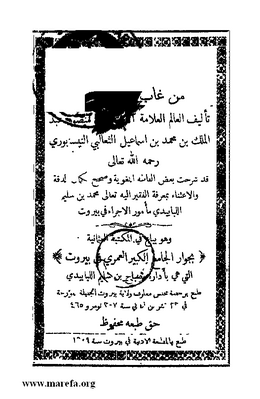 من غاب
تأليف العالم العلامة
الملك بن محمد بن اسماعيل الثعالبي النيسابوري
رحمه الله تعالى
قد شرحت بعض الفاظه اللغوية وصححح بكمال الدقة
والاعتناء بمعرفة الفقير اليه تعالى محمد بن سليم
اللبابيدي مأمور الاجراء في بيروت
وهو يباع في المكتبة العثمانية
بجوار الجامع الكبير العمري في بيروت
التي هي بادارة مصباح بن سليم اللبابيدي
طبع برخصة مجلس معارف ولاية بيروت الجليلة مؤرخة
في ٢٣ تشرين سنة ٣٠٧ نومرو ٤٦٥
حق طبعه محفوظ
طبع بالمطبعة الادبية في بيروت سنة ١٣٠٩
www.marefa.org